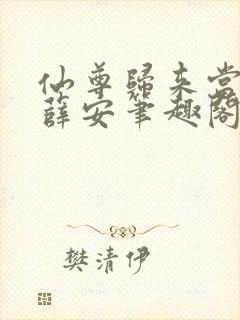 仙尊歸来當
薛安筆趣閣
樊清伊